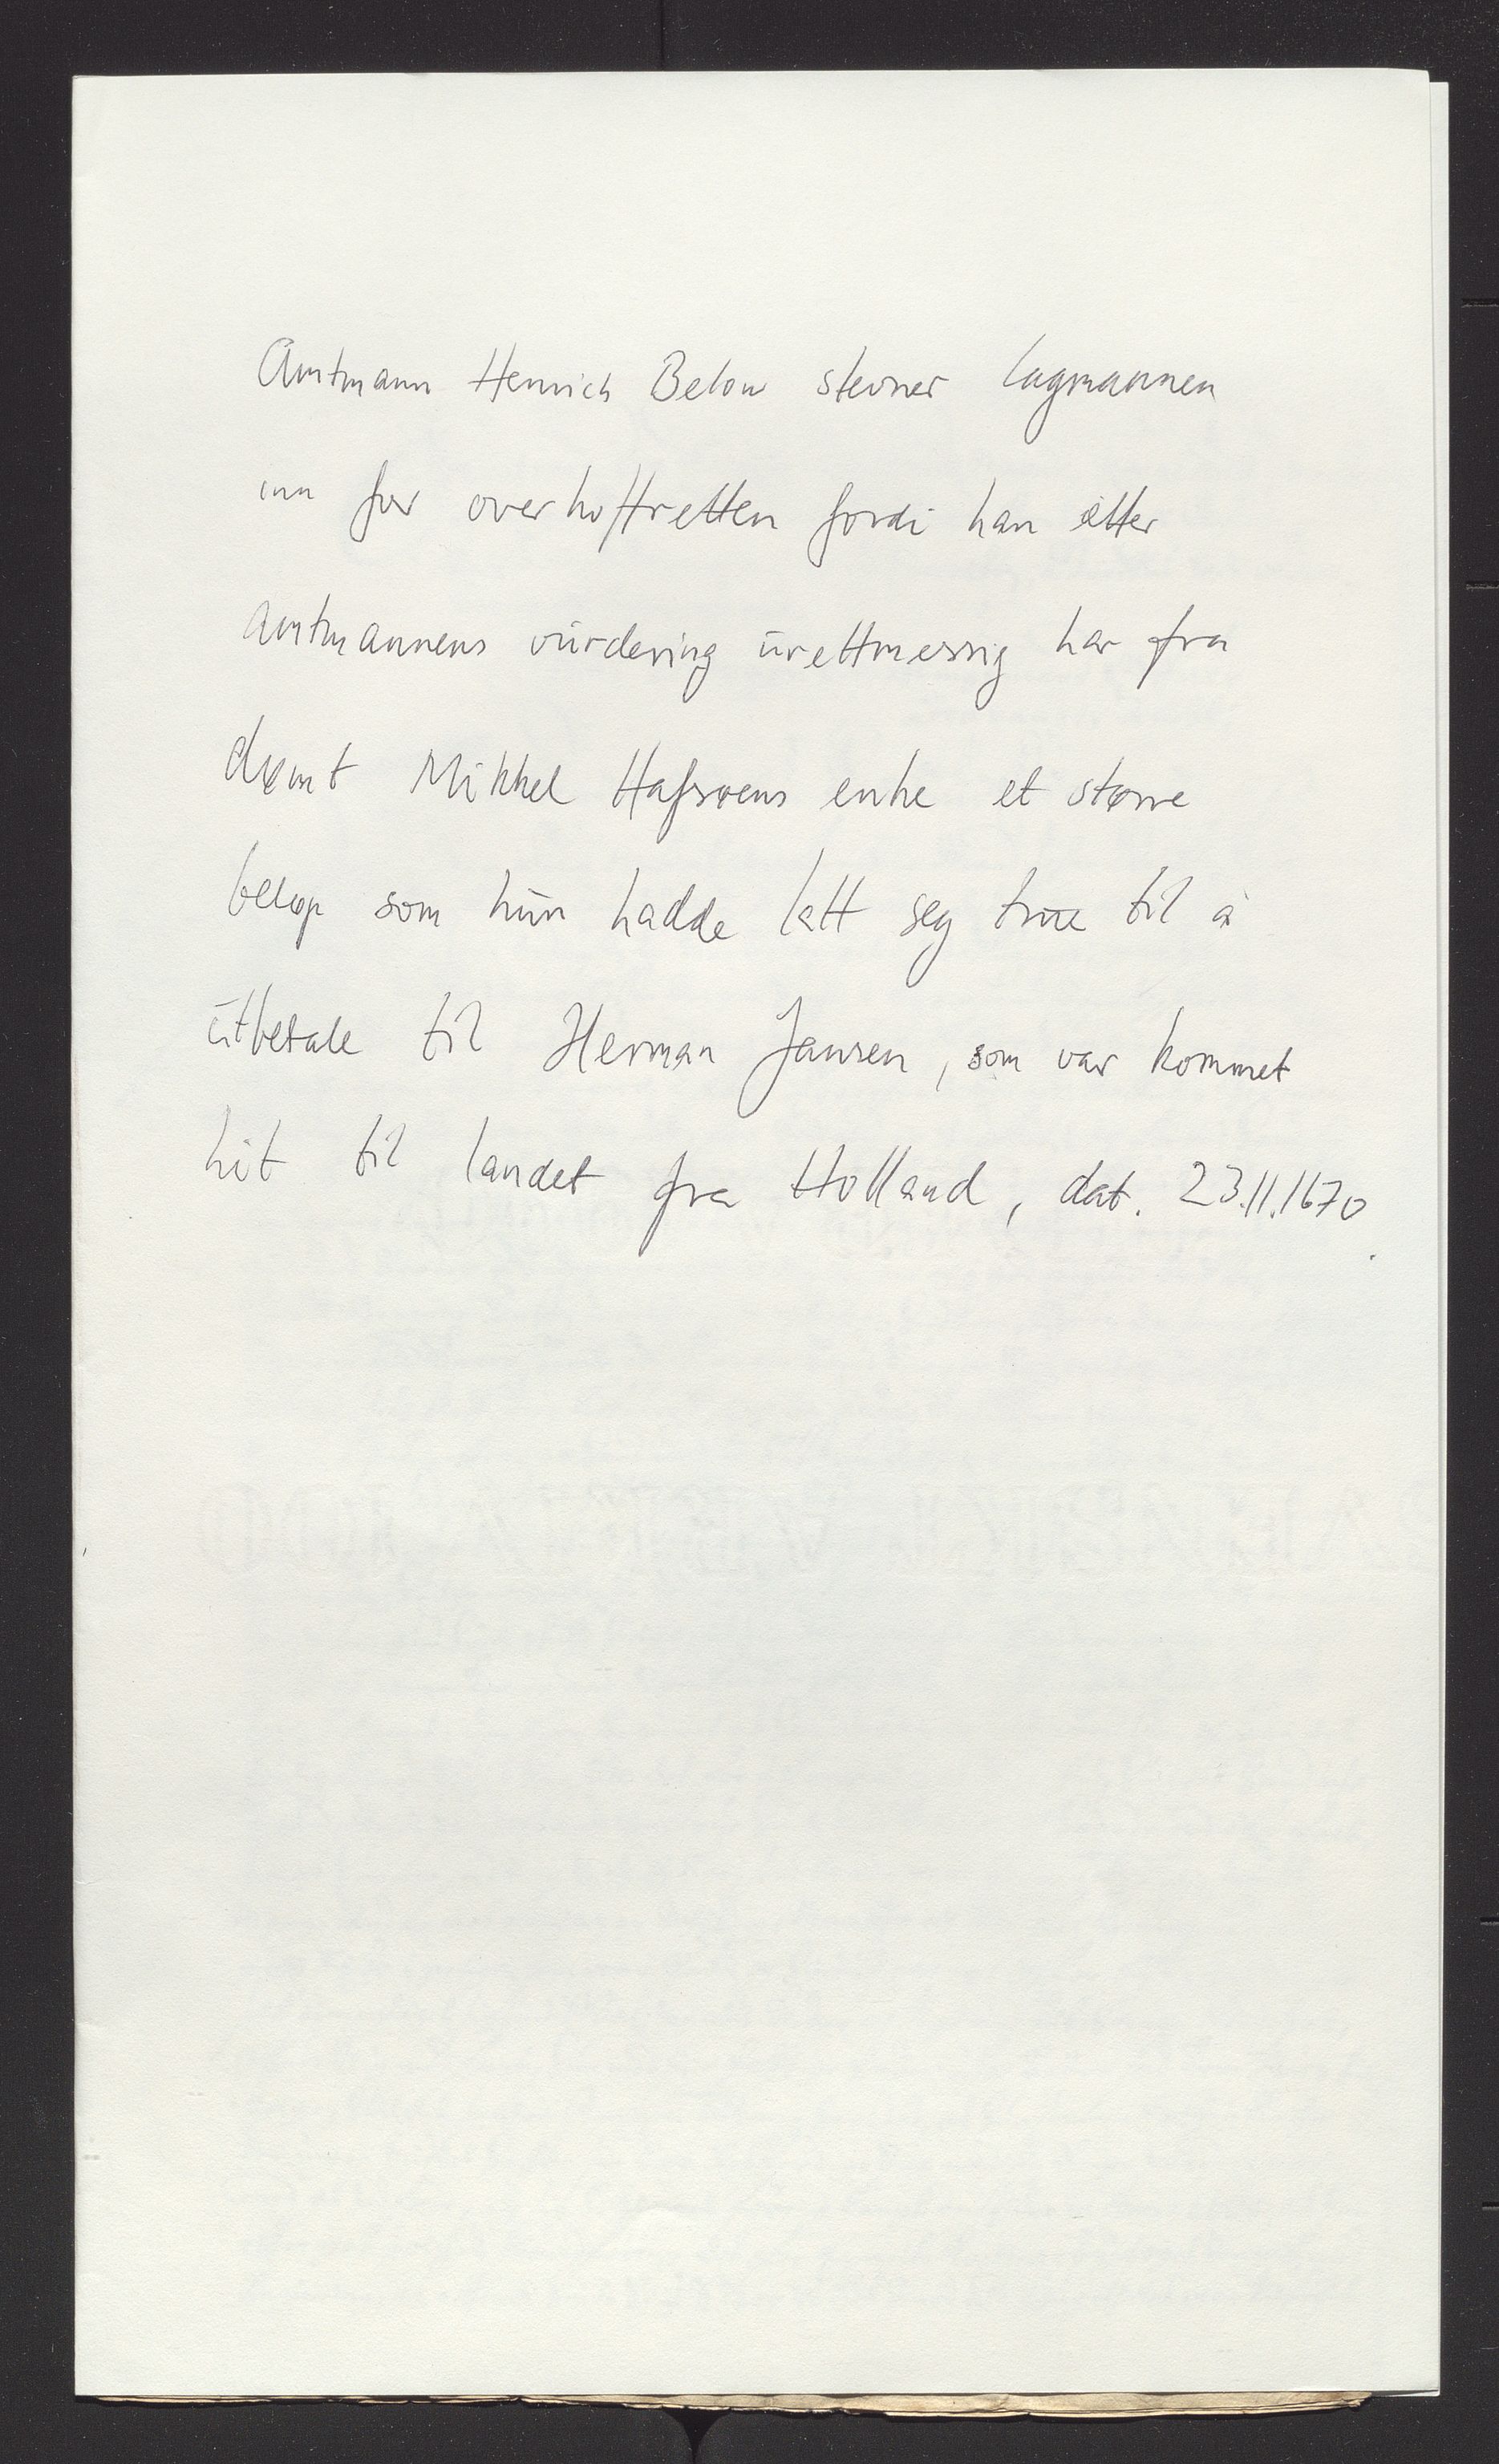 Amtmann Henrich Below stevner lagmannen
inn for overhoffretten fordi han etter
amtmannens vurdering urettmessig har fra
dømt Mikkel Hafsroens enke et større
beløp som hun hadde latt seg true til å
utbetale til Herman Jansen, som var kommet
hit til landet fra Holland, dat. 23.11.1670